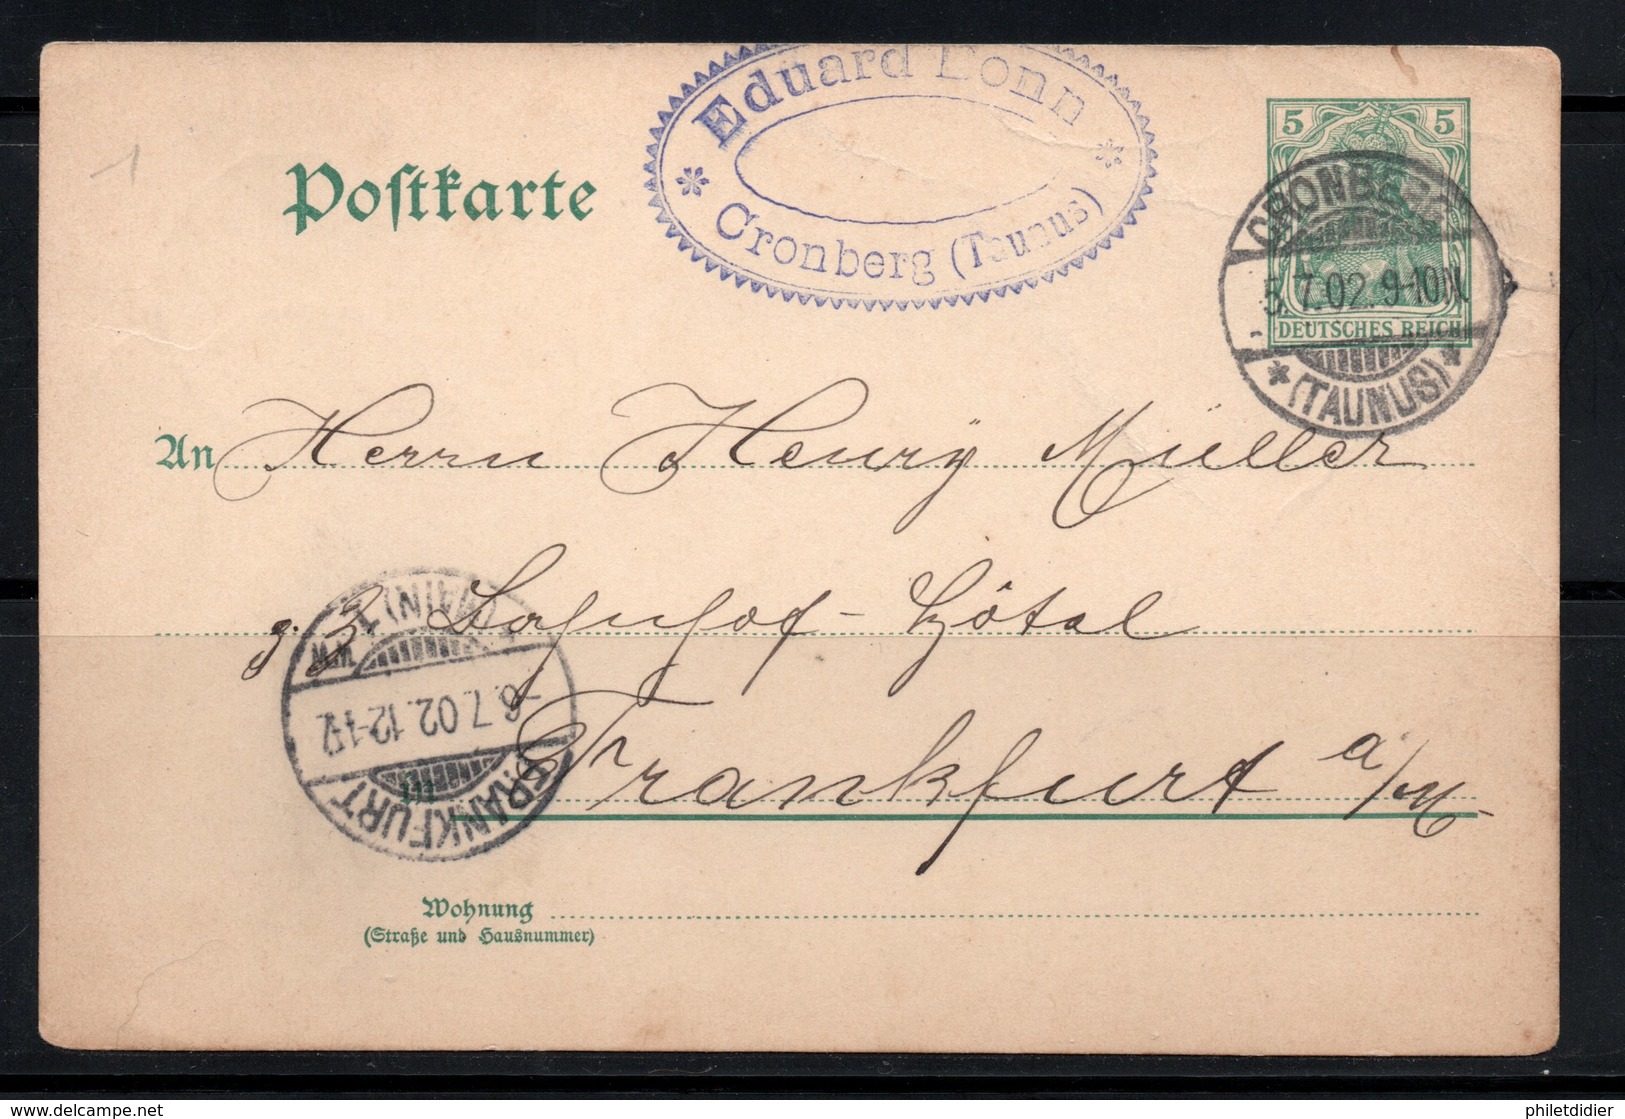 1
Postkarte
Eduard Bonn
* Cronberg (Taunus) *
5 5
DEUTSCHES REICH
CRONBERG
5.7.02.9-10N.
* (TAUNUS) *
An Herrn Henry Müller
z. Z. Bahnhof-Hôtel
Frankfurt a/M.
in
FRANKFURT
6.7.02.12-1V.
(MAIN) 1
Wohnung
(Straße und Hausnummer)
delcampe.net
philetdidier